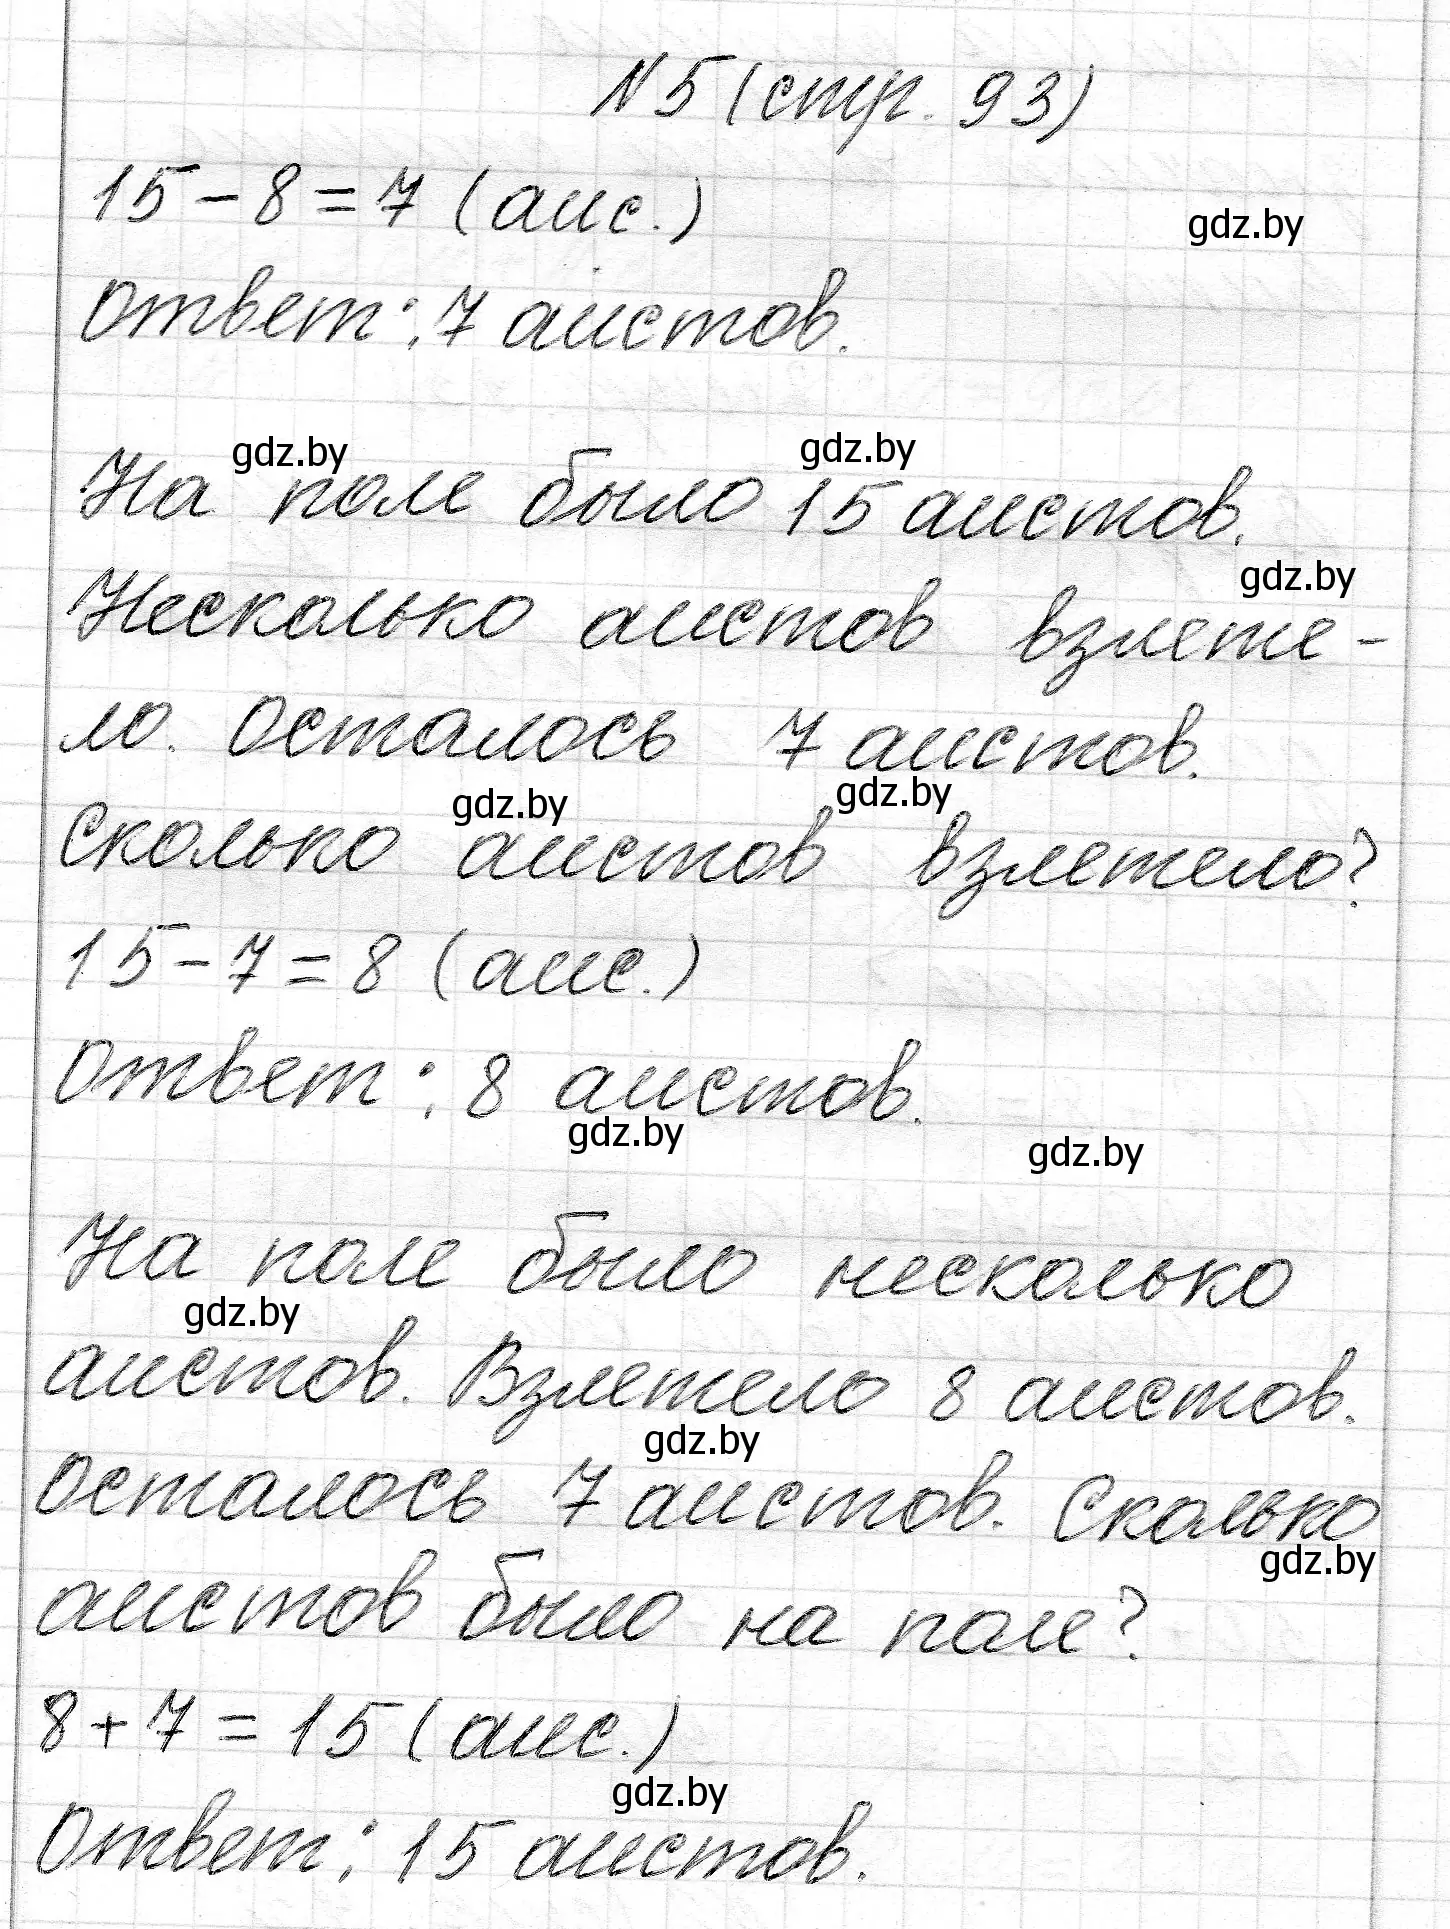 №5 (стр. 93)
15 - 8 = 7 (аис.)
gdz.by
Ответ: 7 аистов.
gdz.by
gdz.by
На поле было 15 аистов.
gdz.by
Несколько аистов взлете-
ло. Осталось 7 аистов.
gdz.by
gdz.by
Сколько аистов взлетело?
15 - 7 = 8 (аис.)
Ответ: 8 аистов.
gdz.by
gdz.by
На поле было несколько
gdz.by
аистов. Взлетело 8 аистов.
gdz.by
Осталось 7 аистов. Сколько
gdz.by
аистов было на поле?
8 + 7 = 15 (аис.)
gdz.by
Ответ: 15 аистов.